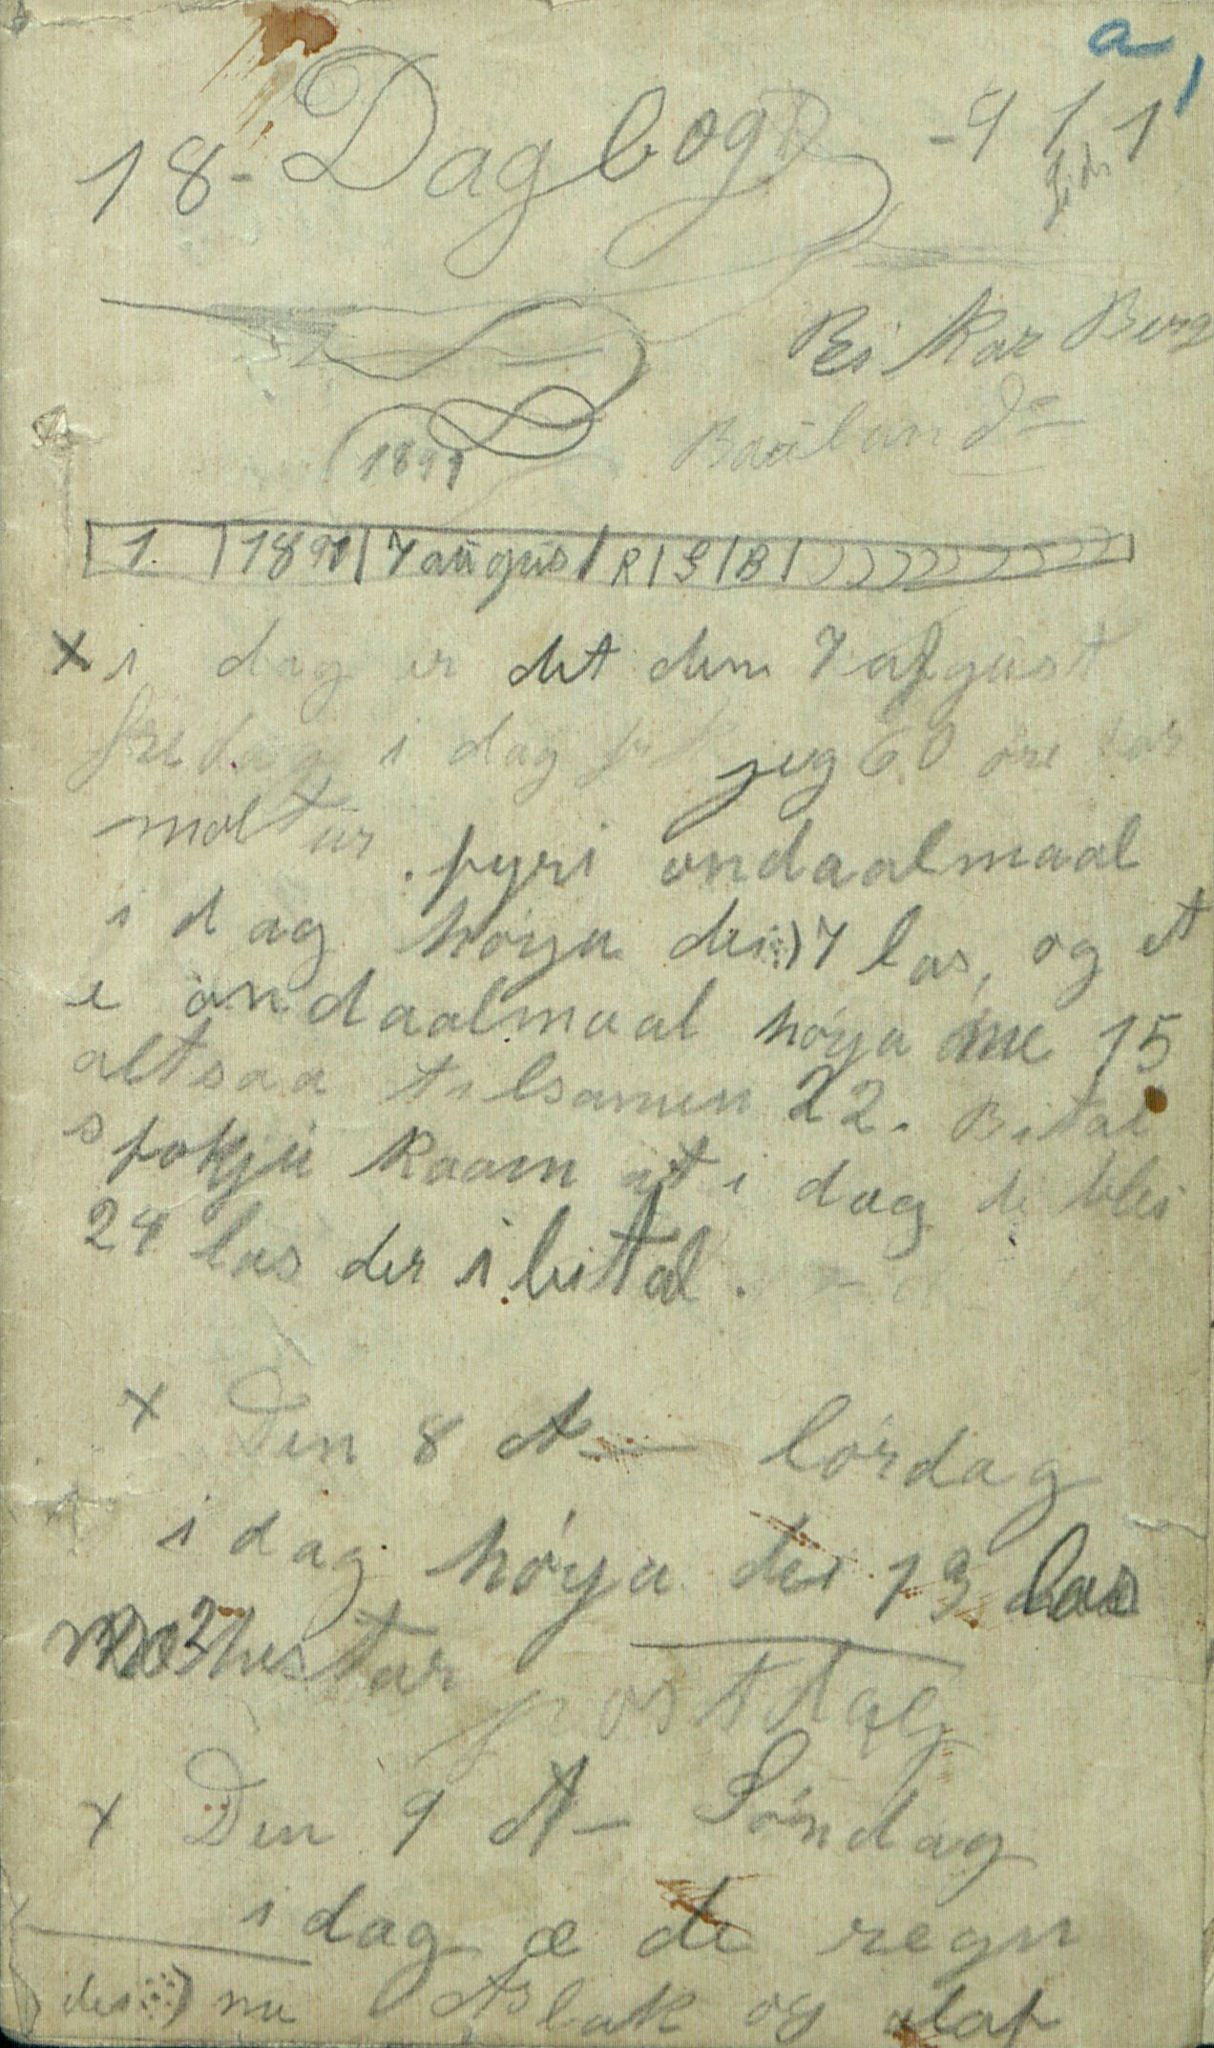 a 1
18- Dagbog -91 1
Rikar Berg
1891
1. | 1891 | 7 august | R | S | B |
X i dag er det den 7 afgust
fredag i dag fek jeg 60 øre
moltur. fyri ondaalmaal
i dag høya dei 7 las, og et
e ondaalmaal høya me 15
altsaa tilsamen 22. Bital
s fokju kaam ut i dag de blei
24 las der i bital.
x Den 8 dt — lørdag
i dag høya dei 13 las
hestar
postdag
x Den 9 dt — Søndag
i dag æ de regn
dei) nu Aslak og olaf